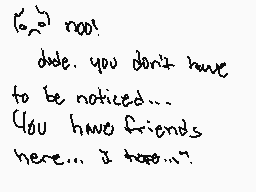 noo!
dude. you don't have
to be noticed...
You have friends
here... I